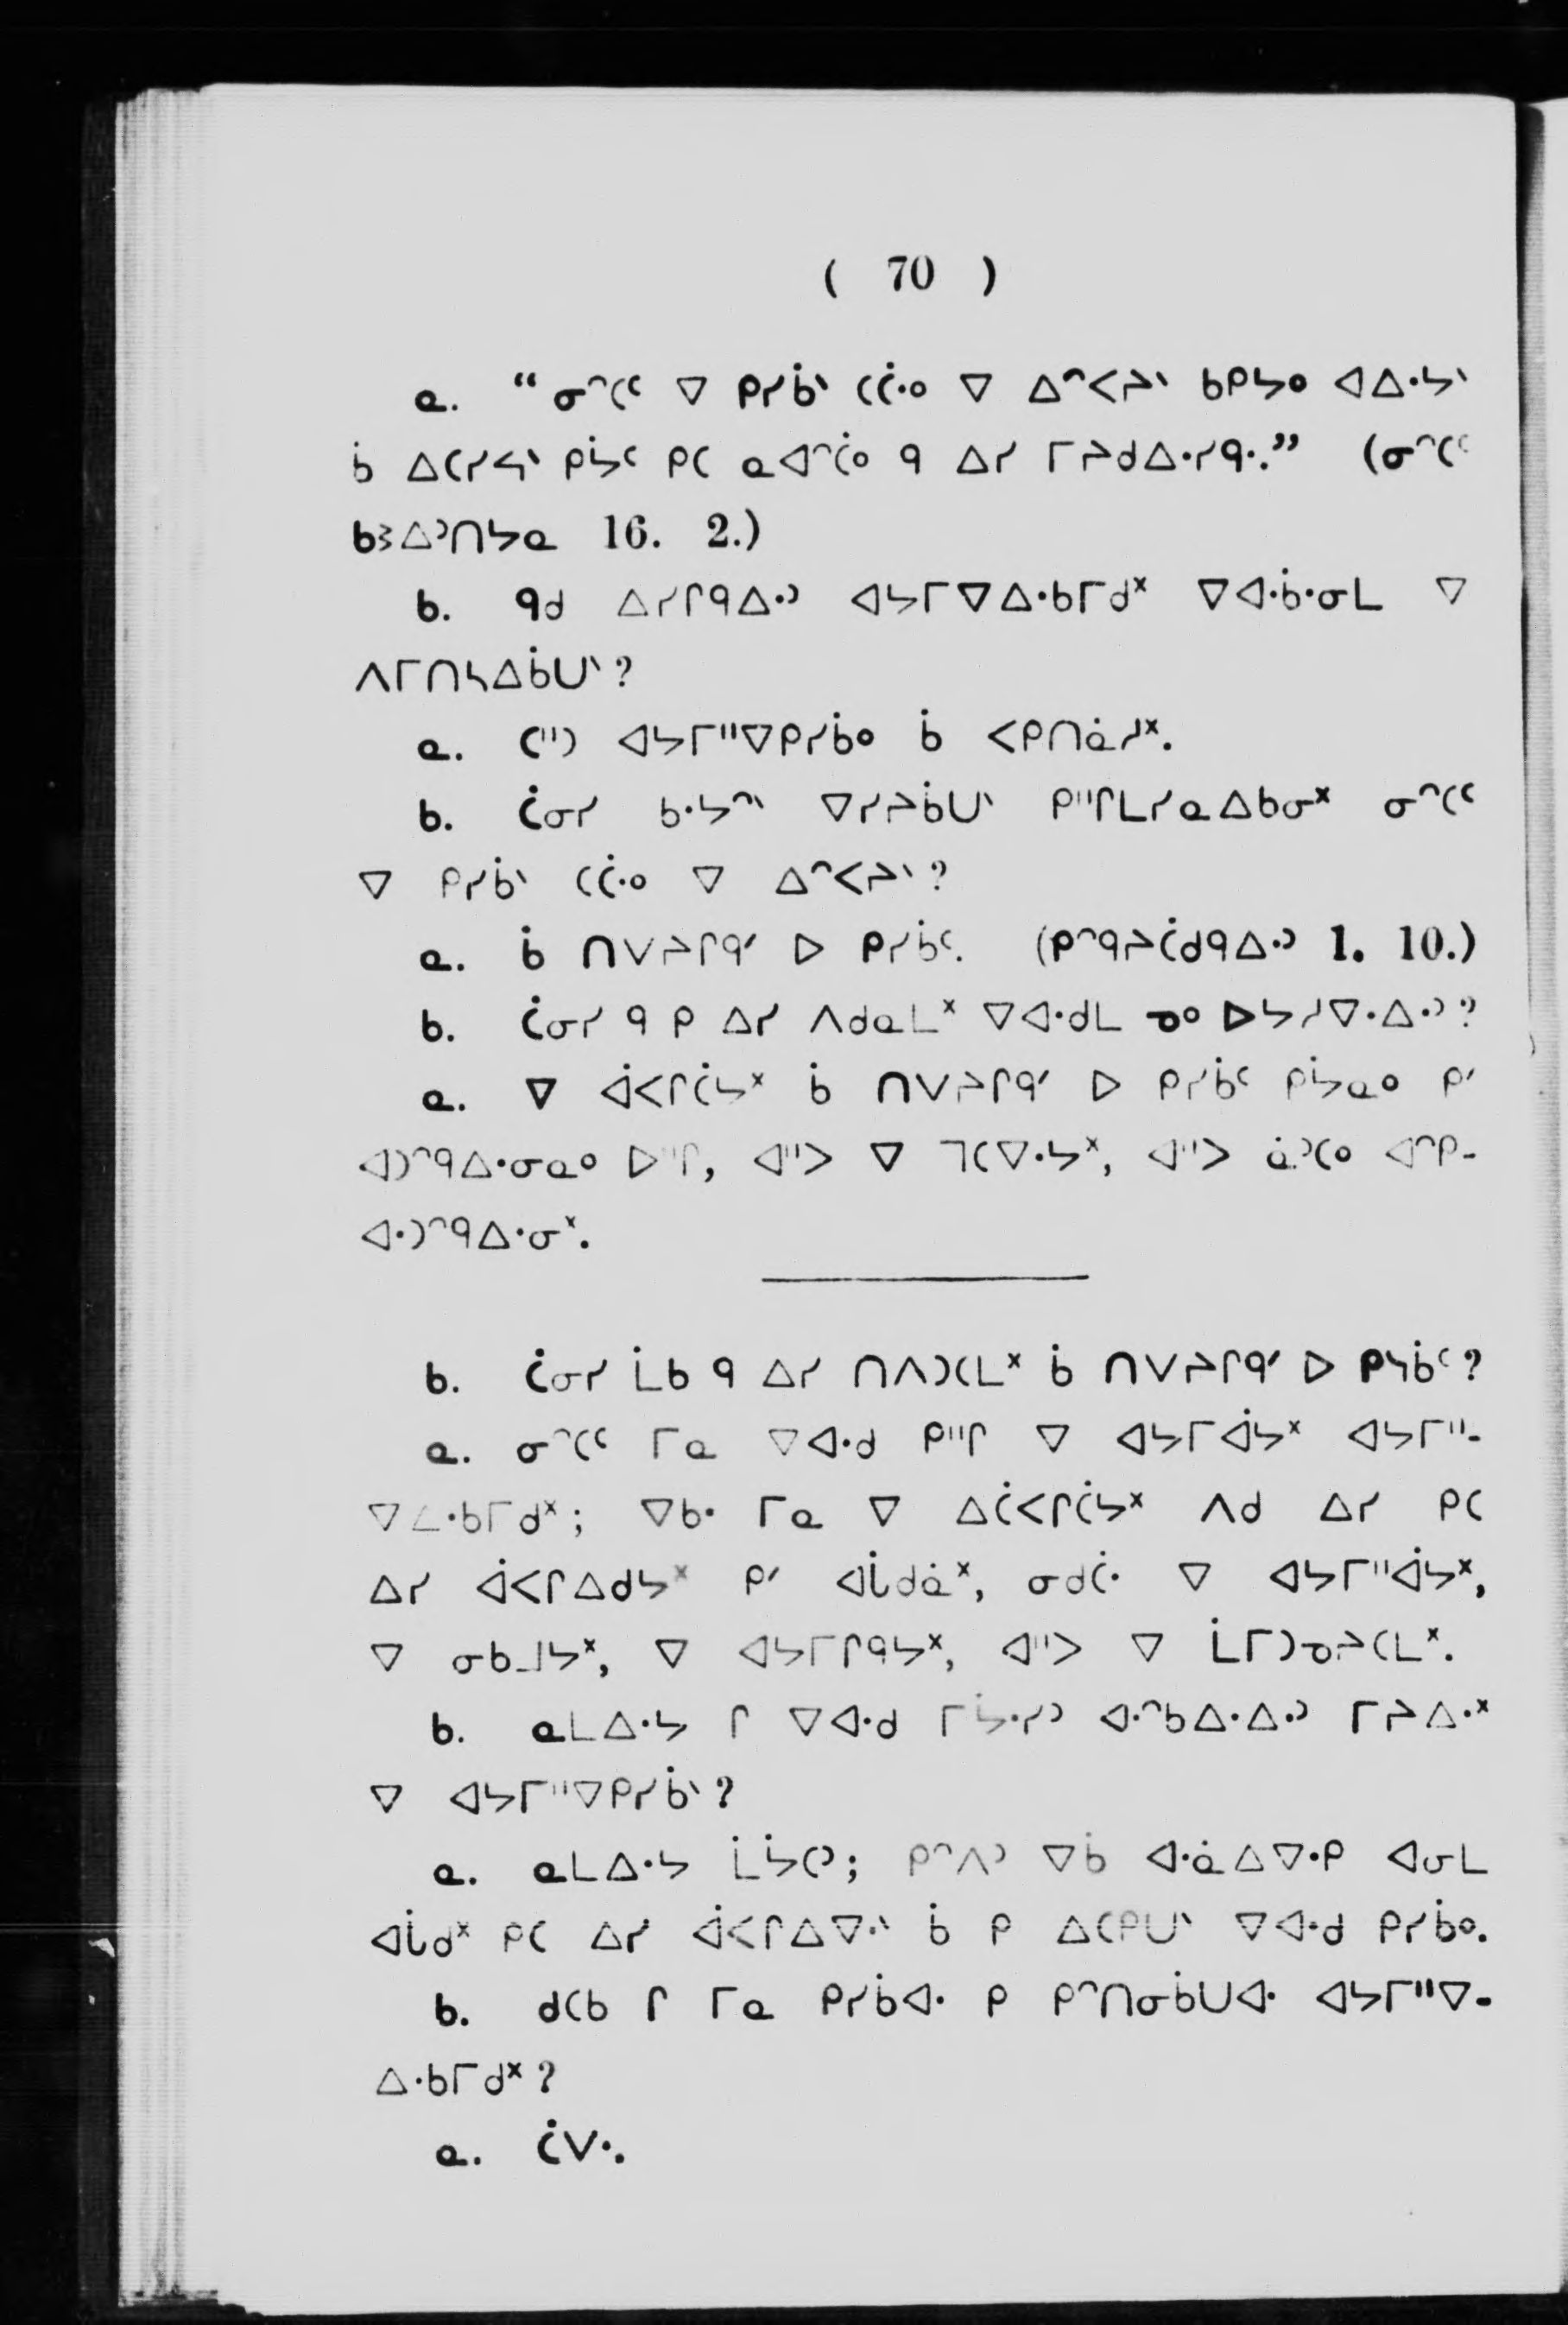 ( 70 )
ᓇ. “ ᓂᐢᑕᑦ ᐁ ᑭᓯᑳᐠ ᑕᑖᐧᐤ ᐁ ᐃᐢᐸᔨᐠ ᑲᑭᔭᐤ ᐊᐃᐧᔭᐠ
ᑳ ᐃᑕᓯᓴᐠ ᑭᔮᑦ ᑭᑕ ᓇᐊᐢᑖᐤ ᑫ ᐃᓯ ᒥᔨᑯᐃᐧᓯᑫᐧ.” (ᓂᐢᑕᑦ
ᑲᕒᐃᐣᑎᔭᓇ 16. 2.)
ᑲ. ᑫᑯ ᐃᓯᒋᑫᐃᐧᐣ ᐊᔭᒥᐁᐃᐧᑲᒥᑯᕽ ᐁᐊᐧᑳᐧᓂᒪ ᐁ
ᐱᒥᑎᓴᐃᑳᑌᐠ ?
ᓇ. ᑕᐦᑐ ᐊᔭᒥᐦᐁᑭᓯᑳᐤ ᑳ ᐸᑭᑎᓈᓱᕽ.
ᑲ. ᑖᓂᓯ ᑲᐧᔭᐢᐠ ᐁᓯᔨᑳᑌᐠ ᑭᐦᒋᒪᓯᓇᐃᑲᓂᕽ ᓂᐢᑕᑦ
ᐁ ᑭᓯᑳᐠ ᑕᑖᐧᐤ ᐁ ᐃᐢᐸᔨᐠ ?
ᓇ. ᑳ ᑎᐯᔨᒋᑫᐟ ᐅ ᑭᓯᑳᑦ. (ᑭᐢᑫᔨᑖᑯᑫᐃᐧᐣ 1. 10.)
ᑲ. ᑖᓂᓯ ᑫ ᑭ ᐃᓯ ᐱᑯᓇᒪᕽ ᐁᐊᐧᑯᒪ ᓀᐤ ᐅᔭᓱᐁᐧᐃᐧᐣ ?
ᓇ. ᐁ ᐋᐸᒋᑖᔭᕽ ᑳ ᑎᐯᔨᒋᑫᐟ ᐅ ᑭᓯᑳᑦ ᑭᔮᓇᐤ ᑭᐟ
ᐊᑐᐢᑫᐃᐧᓂᓇᐤ ᐅᐦᒋ, ᐊᐦᐳ ᐁ ᒣᑕᐁᐧᔭᕽ, ᐊᐦᐳ ᓈᐣᑕᐤ ᐊᐢᑭ-
ᐊᐧᑐᐢᑫᐃᐧᓂᕽ.
ᑲ. ᑖᓂᓯ ᒫᑲ ᑫ ᐃᓯ ᑎᐱᑐᑕᒪᕽ ᑳ ᑎᐯᔨᒋᑫᐟ ᐅ ᑭᓴᑳᑦ ?
ᓇ. ᓂᐢᑕᑦ ᒥᓇ ᐁᐊᐧᑯ ᑭᐦᒋ ᐁ ᐊᔭᒥᐋᔭᕽ ᐊᔭᒥᐦ-
ᐁᐃᐧᑲᒥᑯᕽ ; ᐁᑲᐧ ᒥᓇ ᐁ ᐃᑖᐸᒋᑖᔭᕽ ᐱᑯ ᐃᓯ ᑭᑕ
ᐃᓯ ᐋᐸᒋᐃᑯᔭᕽ ᑭᐟ ᐊᒑᑯᓈᕽ, ᓂᑯᑖᐧ ᐁ ᐊᔭᒥᐦᐋᔭᕽ,
ᐁ ᓂᑲᒧᔭᕽ, ᐁ ᐊᔭᒥᒋᑫᔭᕽ, ᐊᐦᐳ ᐁ ᒫᒥᑐᓀᔨᑕᒪᕽ.
ᑲ. ᓇᒪᐃᐧᔭ ᒋ ᐁᐊᐧᑯ ᒥᔮᐧᓯᐣ ᐊᐧᐢᑲᐃᐧᐃᐧᐣ ᒥᔨᐃᐧᕽ
ᐁ ᐊᔭᒥᐦᐁᑭᓯᑳᐠ ?
ᓇ. ᓇᒪᐃᐧᔭ ᒫᔮᑕᐣ ; ᑭᐢᐱᐣ ᐁᑳ ᐊᐧᓈᐃᐁᐧᑭ ᐊᓂᒪ
ᐊᒑᑯᕽ ᑭᑕ ᐃᓯ ᐋᐸᒋᐃᐁᐧᐠ ᑳ ᑭ ᐃᑕᑭᑌᐠ ᐁᐊᐧᑯ ᑭᓯᑳᐤ.
ᑲ. ᑯᑕᑲ ᒋ ᒥᓇ ᑭᓯᑳᐊᐧ ᑭ ᑭᐢᑎᓂᑳᑌᐊᐧ ᐊᔭᒥᐦᐁ-
ᐃᐧᑲᒥᑯᕽ ?
ᓇ. ᑖᐯᐧ.